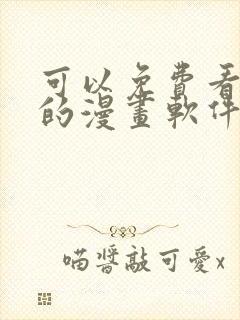 可以免費看
的漫畫軟件
喵醬敲可愛x